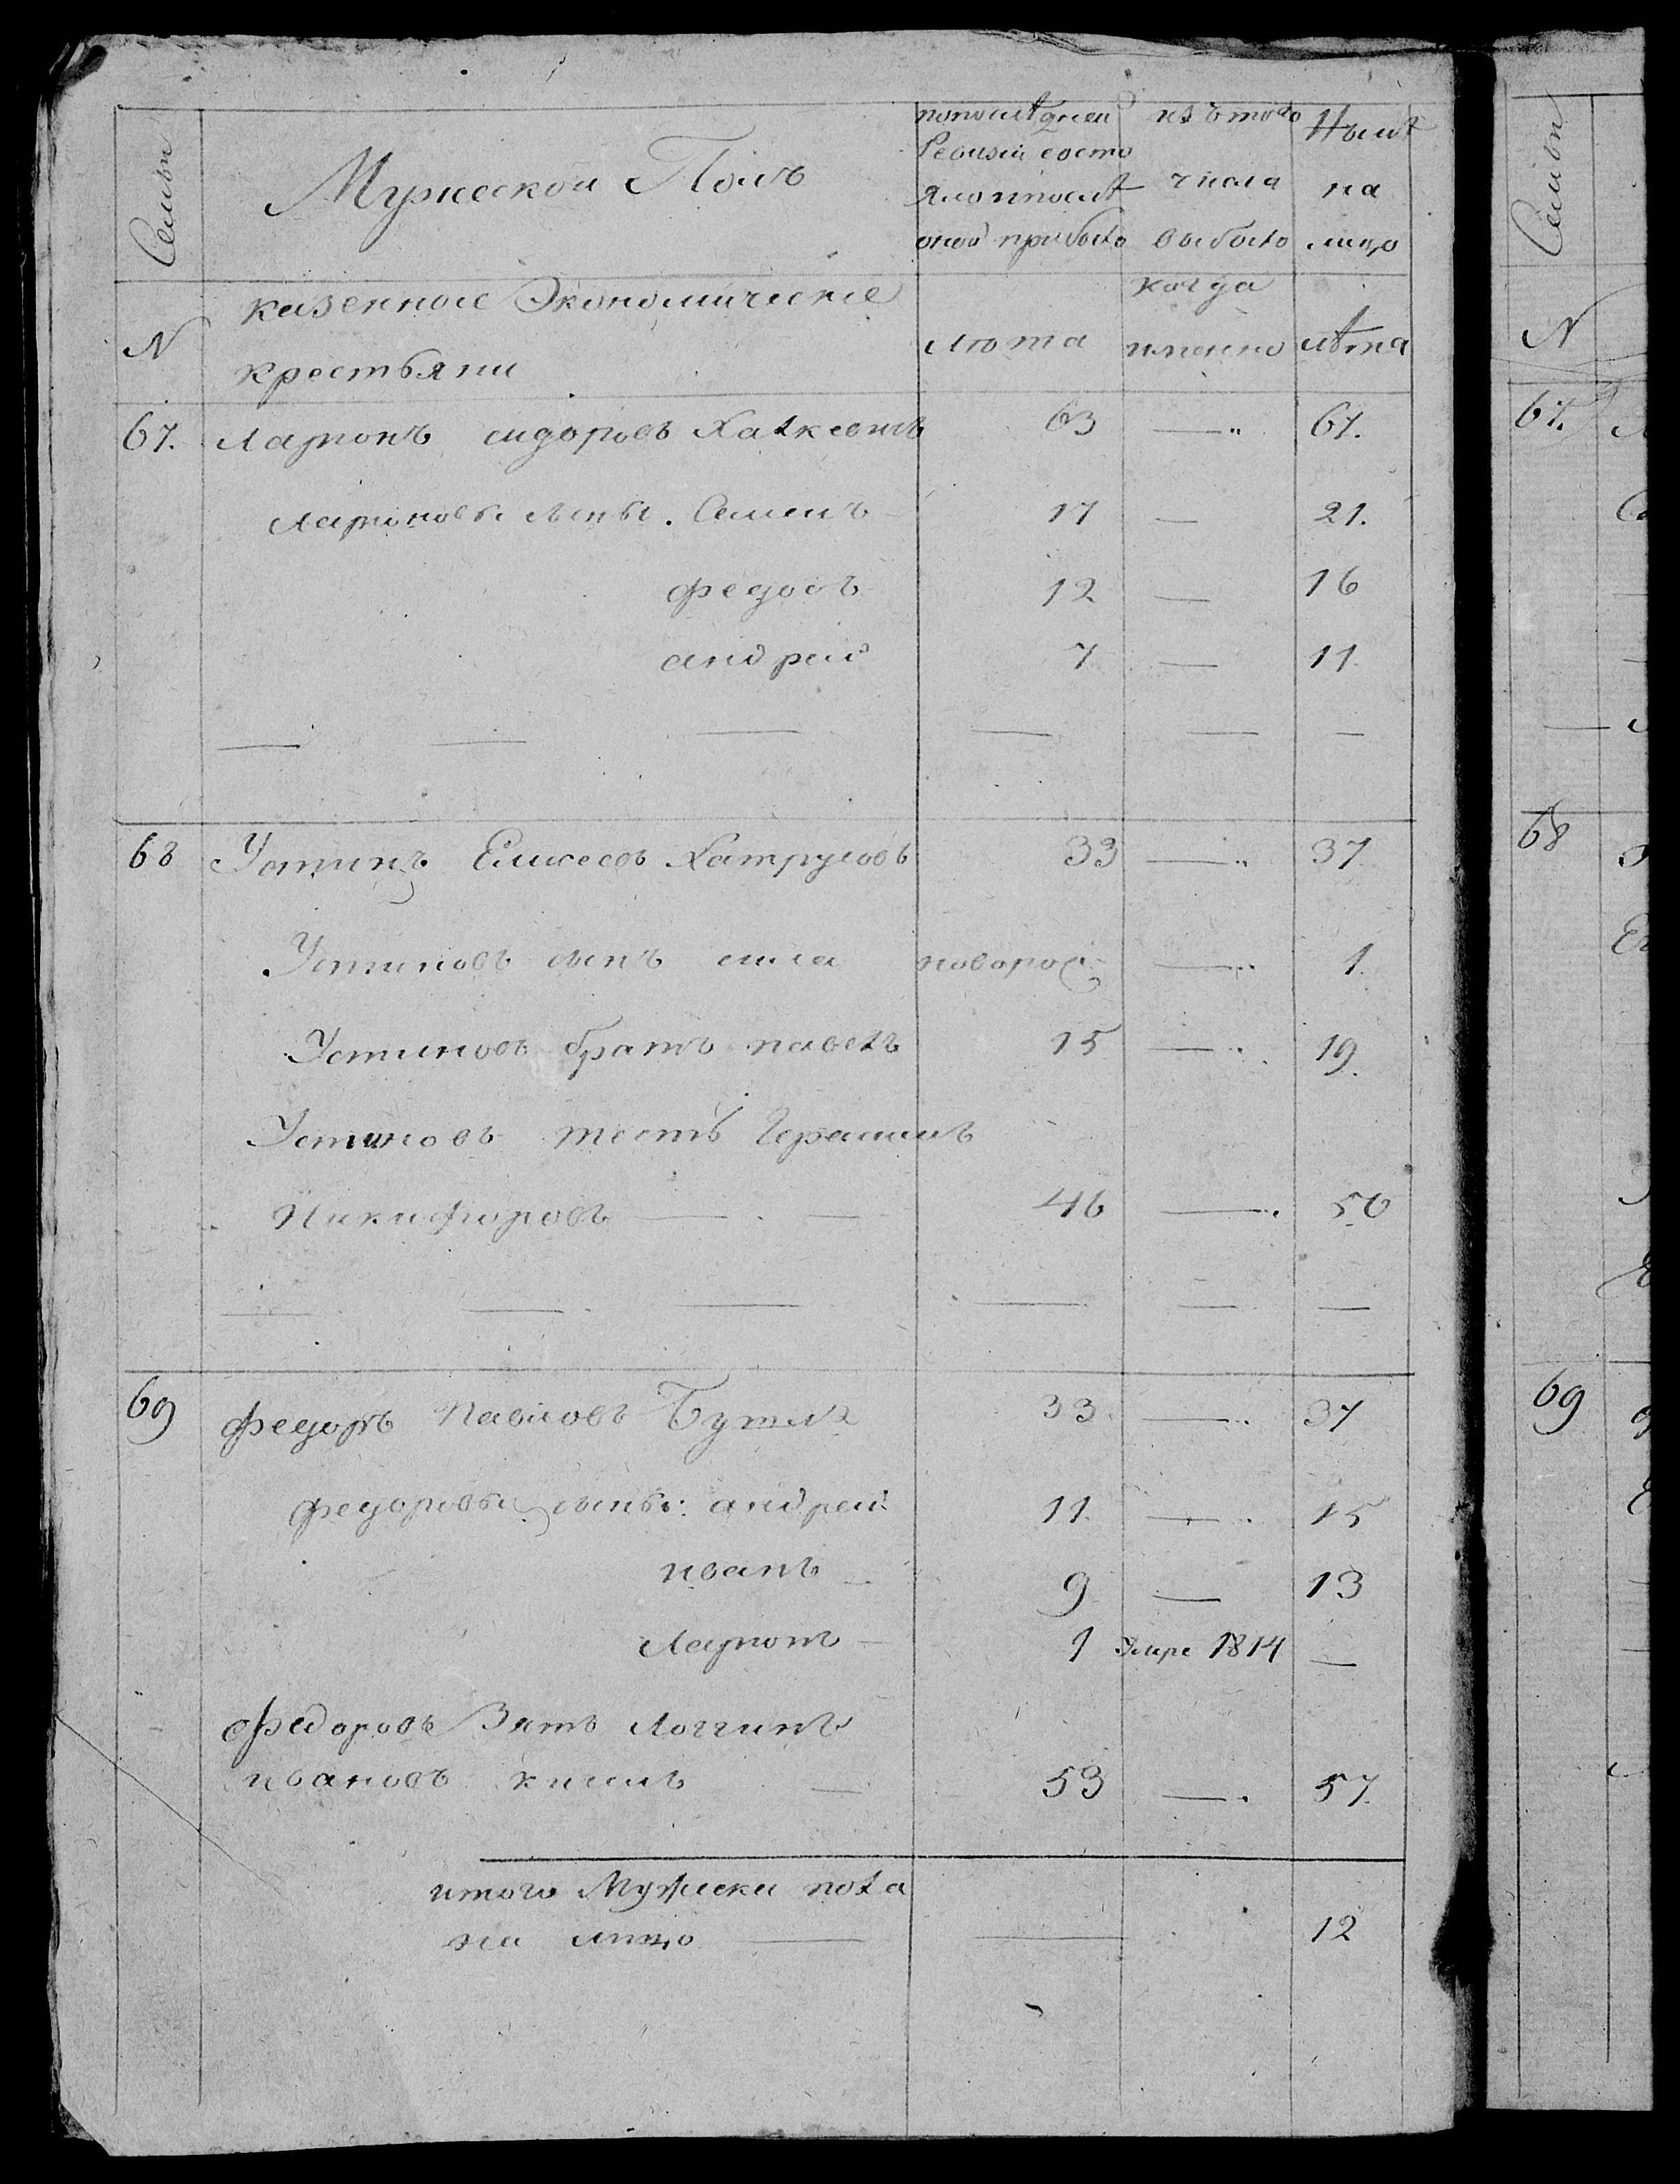 Семьи
Мужеской Полъ
по последней Ревизии состо
яло и после
оной прибыло
изъ того
числа
выбыло
когда
именно
Ныне
на
лицо
N
казенные Экономические
крестьяни
лета
лета
67. Ларионъ сидоровъ 63 — 67.
Ларионовы сыны. Семенъ 17 — 21.
федосъ 12 — 16
андрей 7 — 11
68 Устинъ Елисеевъ 33 — 37
Устиновъ сынъ сила новорож — 1
Устиновъ братъ павелъ 15 — 19.
Устиновъ тесть Герасимъ
Никифоровъ — 46 — 50
69 федоръ Павловъ 33 — 37
федоровы сыны: андрей 11 — 15
иванъ 9 — 13
Ларионъ 1 Умре 1814 —
Федоровъ Зять Логгинъ
ивановъ 53 — 57
итого Мужеска пола
на лицо — 12
Семьи
N
67.
68
69